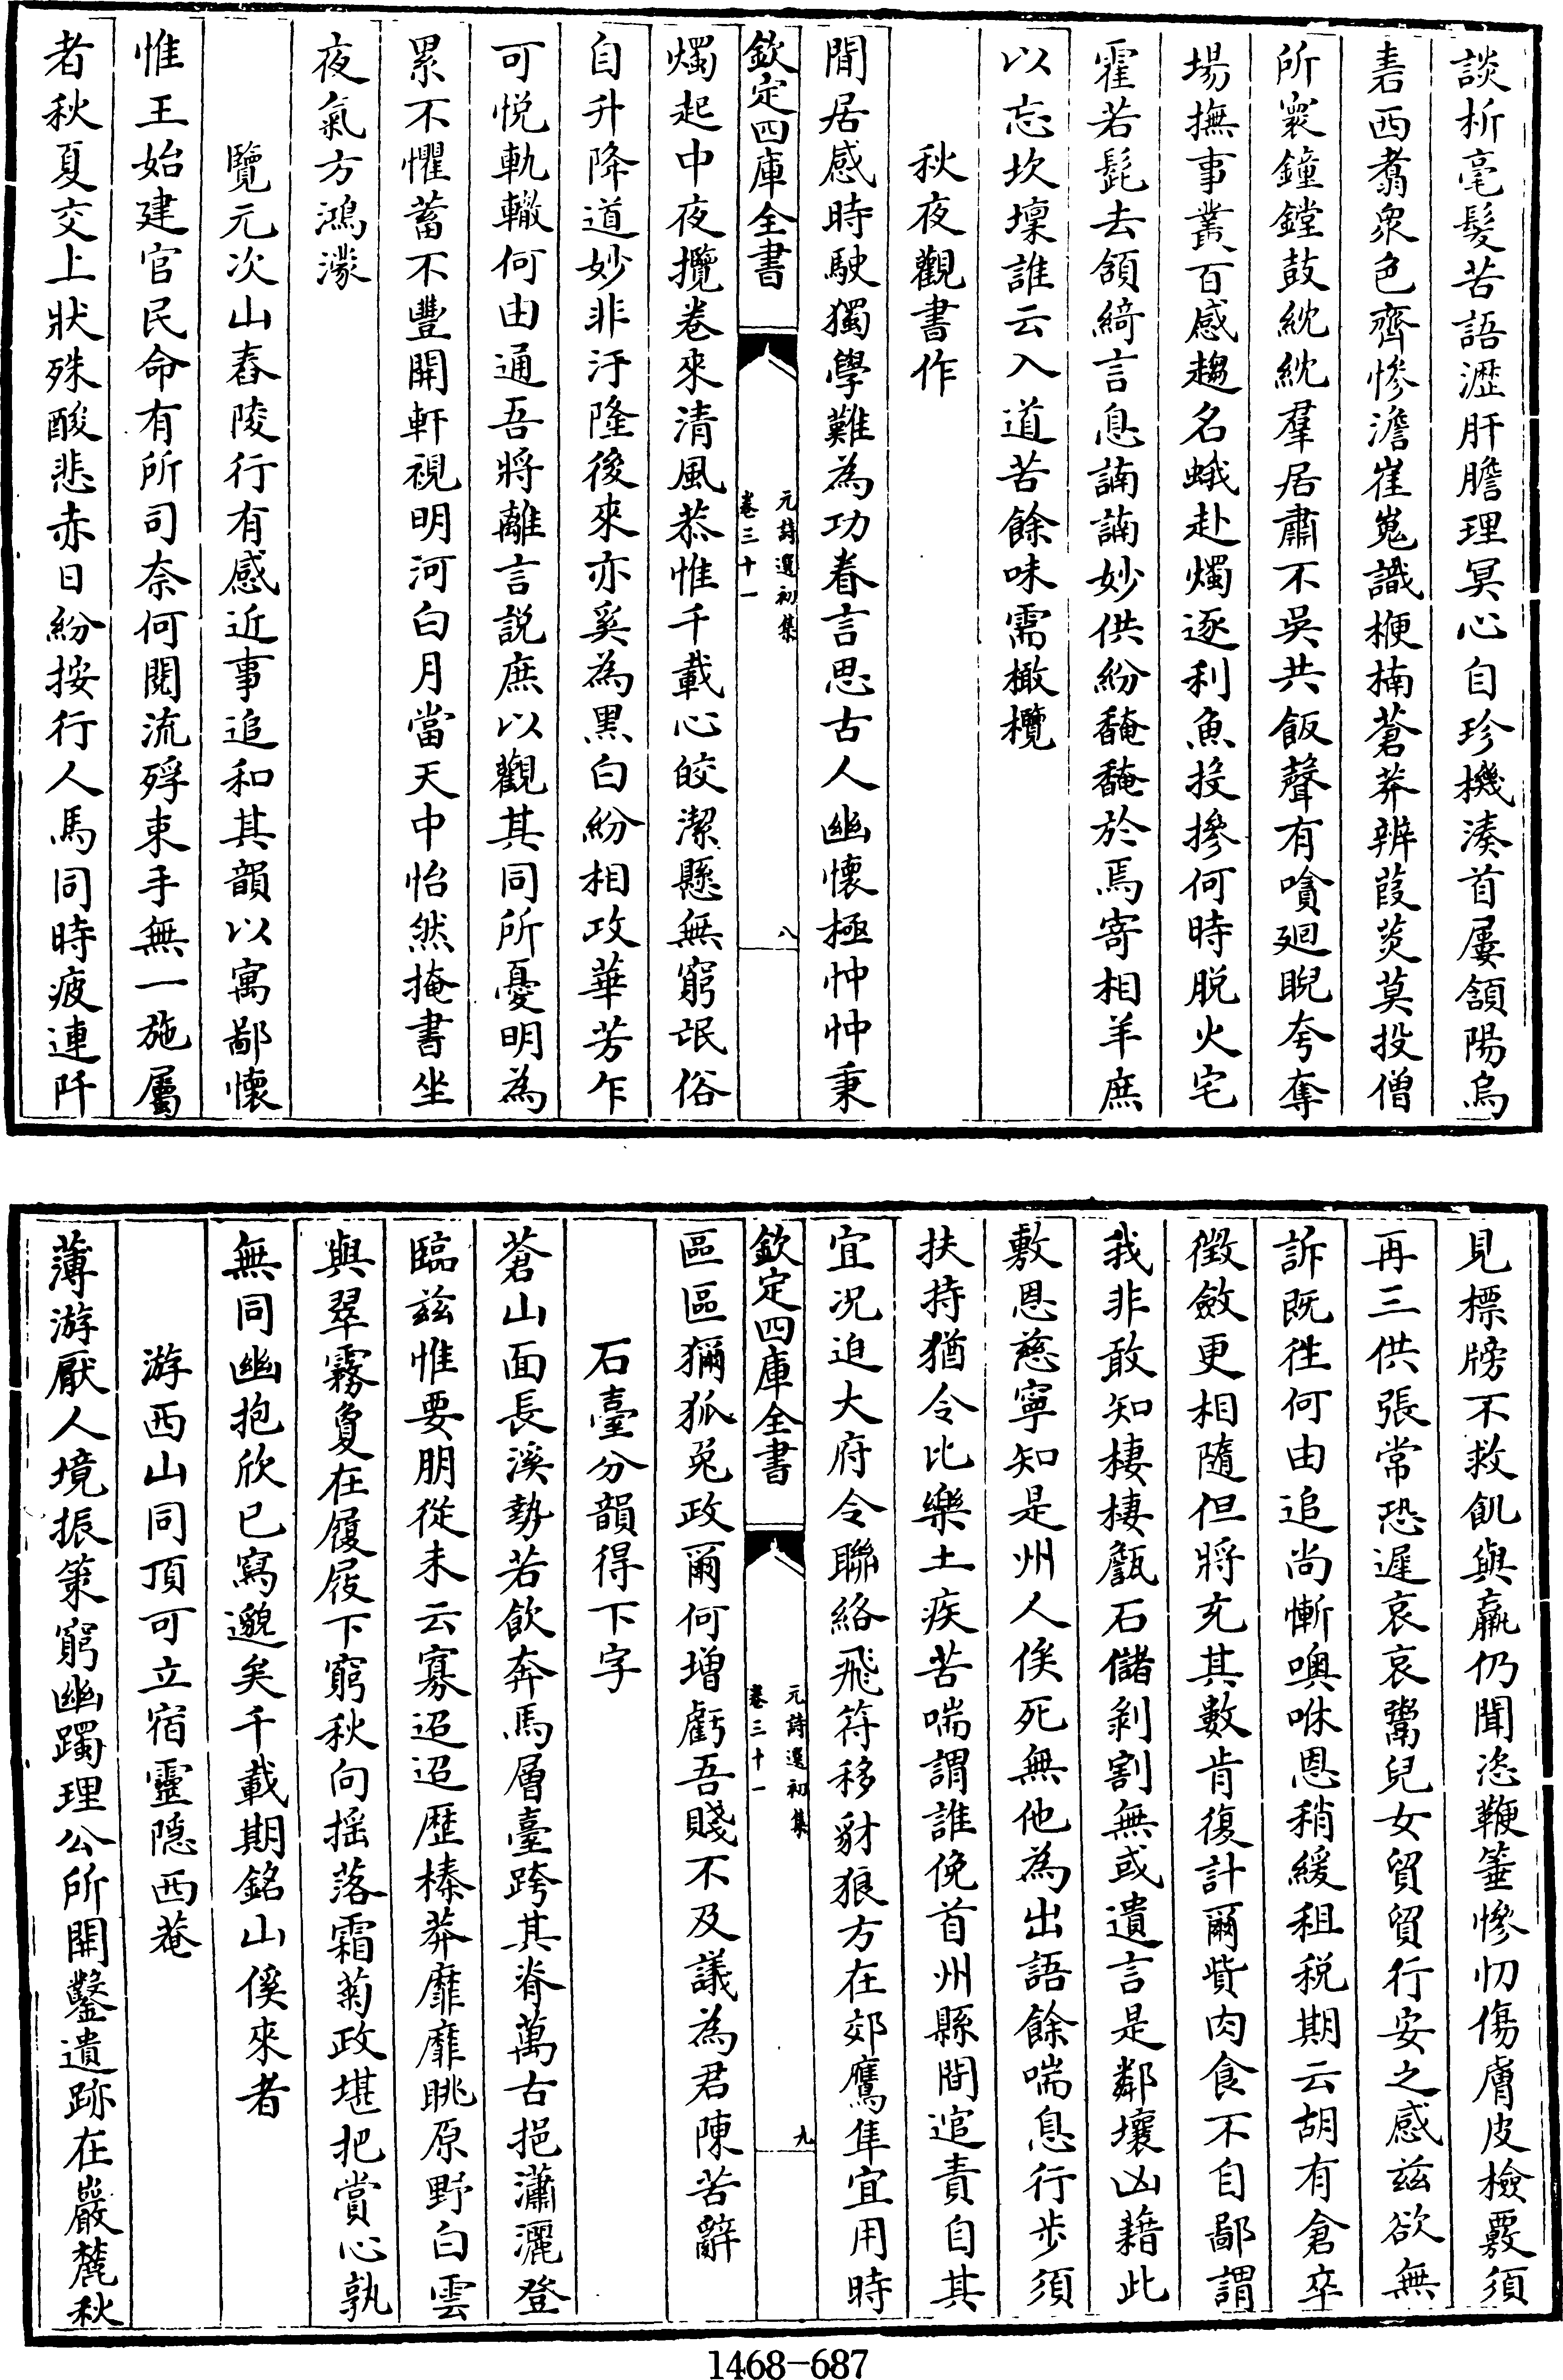 談析毫髮苦語瀝肝膽理冥心自珍機湊首屢頷陽烏
砉西翥衆色齊慘澹崔嵬識楩楠蒼莽辨葭菼莫投僧
所裠鐘鏜鼓紞紞羣居肅不吳共飯聲有嗿廻睨夸奪
場撫事叢百感趨名蛾赴燭逐利魚投摻何時脫火宅
霍若髭去頷綺言息諵諵妙供紛馣馣於焉寄相羊庶
以忘坎壈誰云入道苦餘味需橄欖
秋夜觀書作
閒居感時駛獨學難為功眷言思古人幽懷極忡忡秉
欽定四庫全書
元詩選初集
卷三十一
八
燭起中夜攬卷來清風恭惟千載心皎潔懸無窮氓俗
自升降道妙非汙隆後來亦奚為黑白紛相攻華芳乍
可悅軌轍何由通吾將離言說庶以觀其同所憂明為
累不懼蓄不豐開軒視明河白月當天中怡然掩書坐
夜氣方鴻濛
覽元次山舂陵行有感近事追和其韻以寓鄙懷
惟王始建官民命有所司奈何閱流殍束手無一施屬
者秋夏交上狀殊酸悲赤日紛按行人馬同時疲連阡
見標牓不救飢與羸仍聞恣鞭箠慘忉傷膚皮檢覈須
再三供張常恐遲哀哀鬻兒女貿貿行安之感茲欲無
訴既徃何由追尚慚噢咻恩稍緩租稅期云胡有倉卒
徵斂更相隨但將充其數肯復計爾貲肉食不自鄙謂
我非敢知棲棲甔石儲剝割無或遺言是鄰壤凶藉此
敷恩慈寧知是州人俟死無他為出語餘喘息行步須
扶持猶令比樂土疾苦喘謂誰俛首州縣間逭責自其
宜况迫大府令聯絡飛符移豺狼方在郊鷹隼宜用時
欽定四庫全書
元詩選初集
卷三十一
九
區區獮狐兔政爾何增虧吾賤不及議為君陳苦辭
石臺分韻得下字
蒼山面長溪勢若飲奔馬層臺跨其脊萬古挹瀟灑登
臨茲惟要朋從未云寡迢迢歷榛莽靡靡眺原野白雲
與翠霧夐在履屐下窮秋向搖落霜菊政堪把賞心孰
無同幽抱欣已寫邈矣千載期銘山俟來者
游西山同頂可立宿靈隱西菴
薄游厭人境振策窮幽躅理公所開鑿遺跡在巖麓秋
1468-687